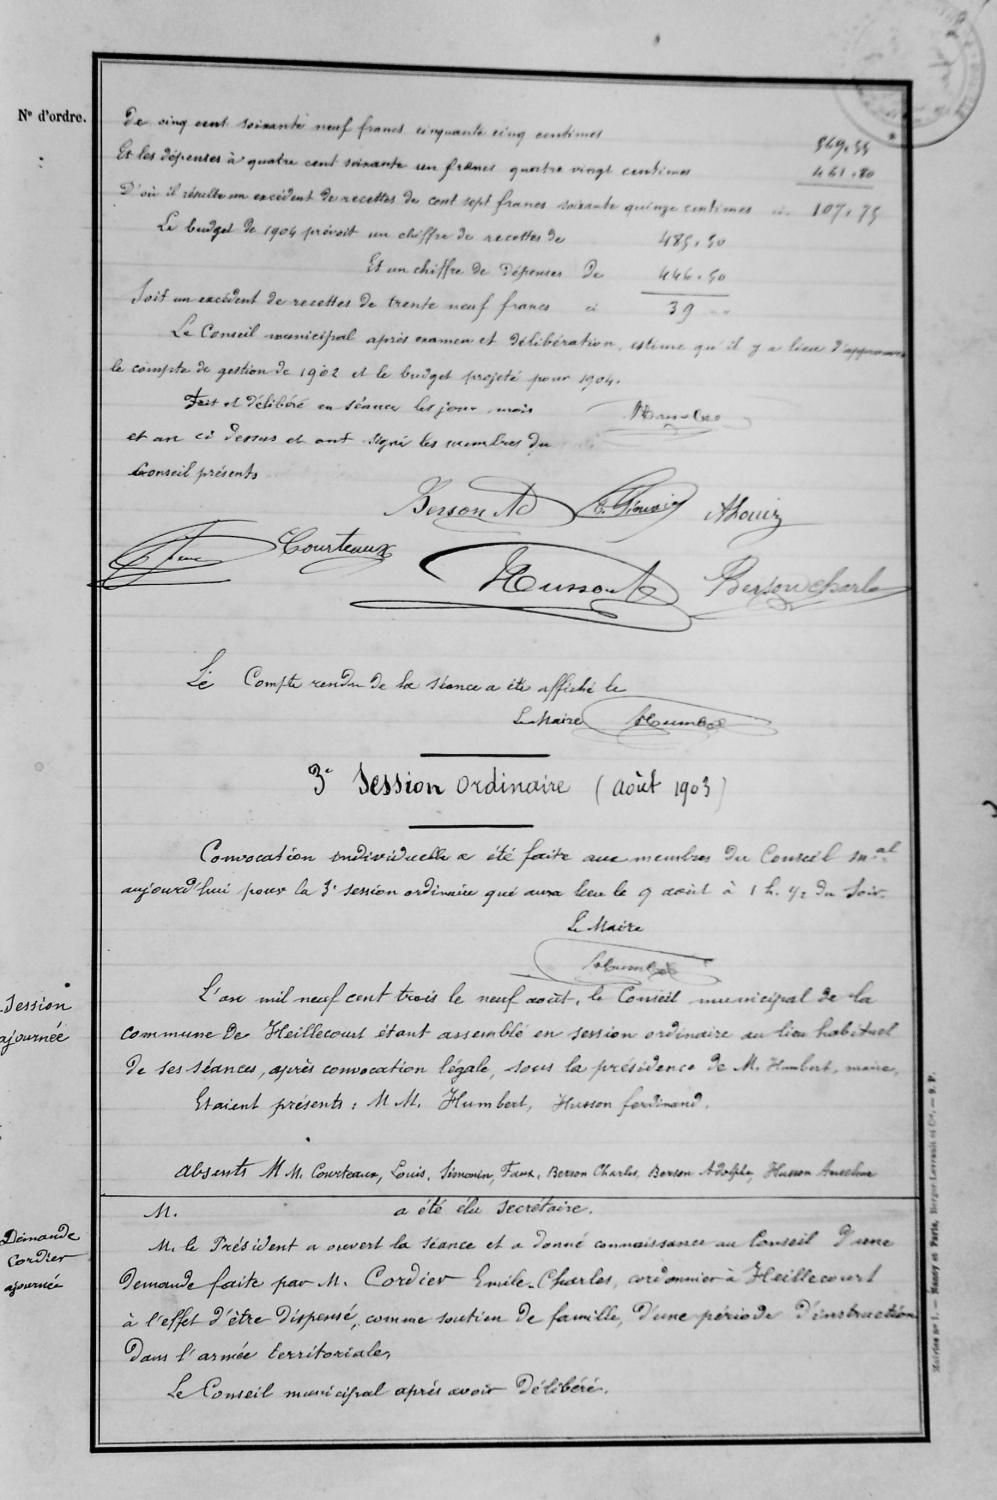 N° d'ordre.
De cinq cent soixante neuf francs cinquante cinq centimes 569.55
Et les dépenses à quatre cent soixante un francs quatre vingt centimes 461.80
D'où il résulte un excédent de recettes de cent sept francs soixante quinze centimes ci 107.75
Le budget de 1904 prévoit un chiffre de recettes de 485.50
Et un chiffre de dépenses de 446.50
Soit un excédent de recettes de trente neuf francs ci 39 --
Le Conseil municipal après examen et délibération, estime qu'il y a lieu d'approuver
le compte de gestion de 1902 et le budget projeté pour 1904.
Fait et délibéré en séance les jour, mois
et an ci dessus et ont signé les membres du
Conseil présents
Berson Ad Louis
Courteaux Husson Berson Charles
Le Compte rendu de la séance a été affiché le
Le Maire Humbert
3e Session Ordinaire (Août 1903)
Convocation individuelle a été faite aux membres du Conseil m.al
aujourd'hui pour la 3e session ordinaire qui aura lieu le 9 août à 1 h. 1/2 du soir.
Le Maire
Humbert
Session
ajournée
L'an mil neuf cent trois le neuf août, le Conseil municipal de la
commune de Heillecourt étant assemblé en session ordinaire au lieu habituel
de ses séances, après convocation légale, sous la présidence de M. Humbert, maire,
Etaient présents : M M. Humbert, Husson ferdinand.
Absents M M. Courteaux, Louis, Simonin, Faux, Berson Charles, Berson Adolphe, Husson Anselme
M. a été élu secrétaire.
Demande
Cordier
ajournée
M. le Président a ouvert la séance et a donné connaissance au Conseil d'une
demande faite par M. Cordier Emile-Charles, cordonnier à Heillecourt
à l'effet d'être dispensé, comme soutien de famille, d'une période d'instruction
dans l'armée territoriale,
Le Conseil municipal après avoir délibéré.
Mairies n° 1. — Nancy et Paris, Berger-Levrault et Cie. — 9. P.